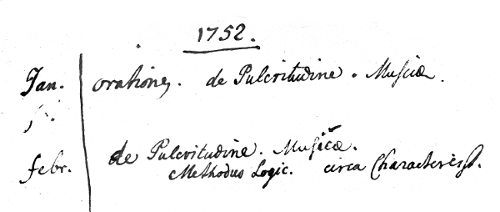 1752.
Jan. orationes. de Pulcritudine. Musicæ.
febr. de Pulcritudine. Musicæ.
Methodus Logic. circa Characterist.